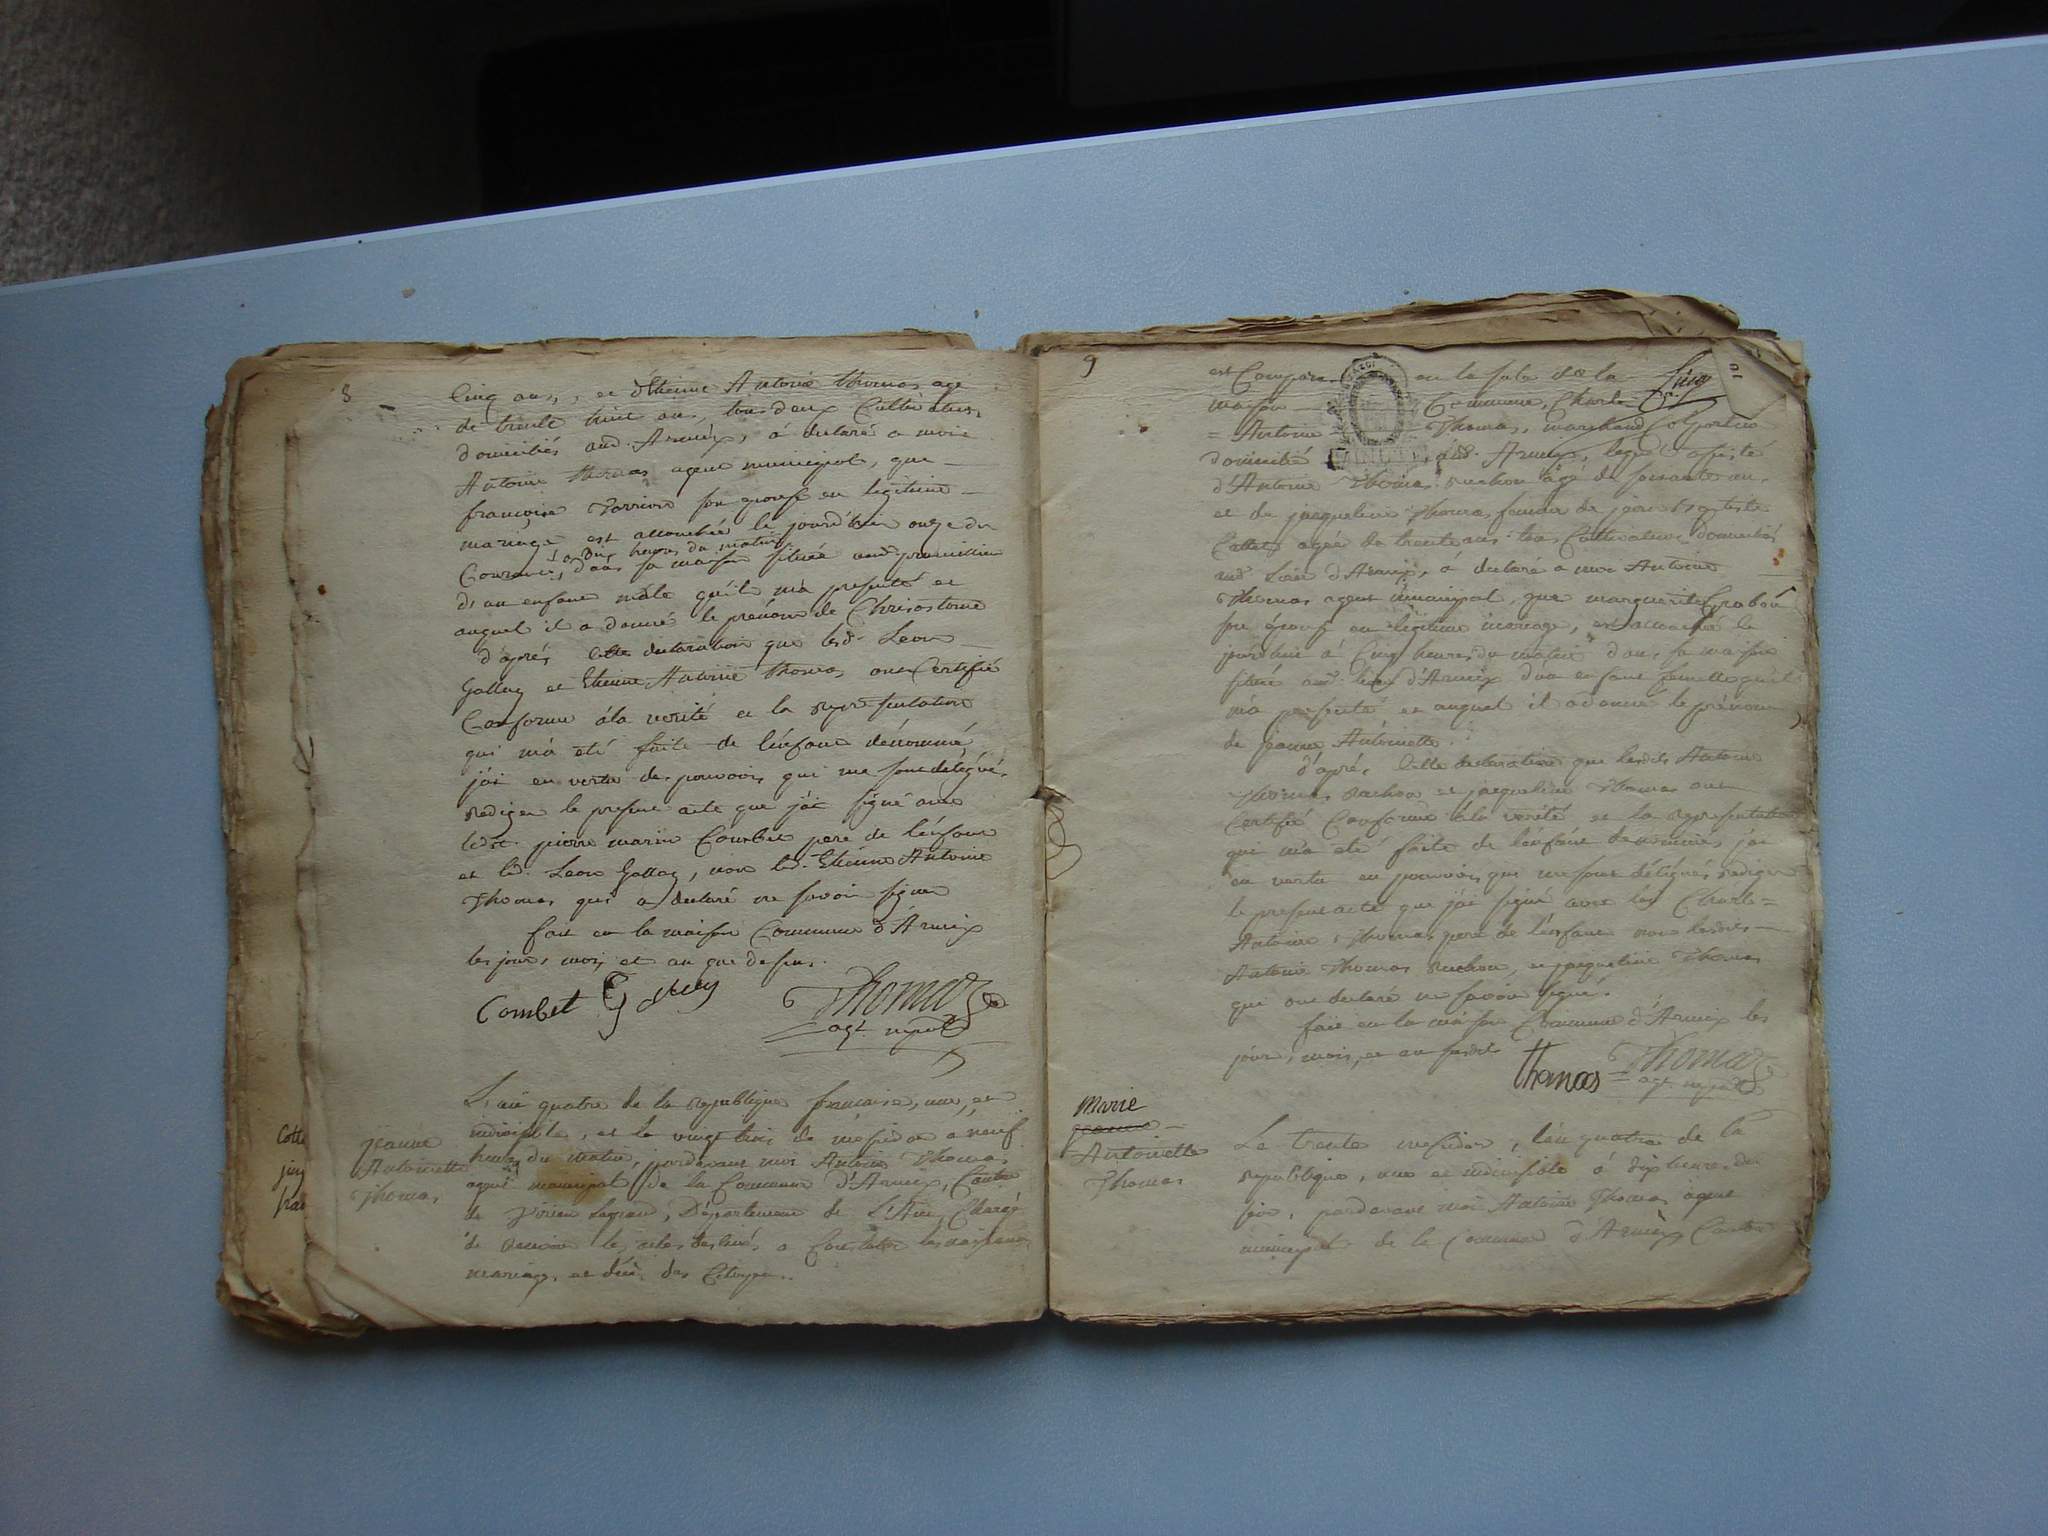 8
Cinq ans, et d'Etienne Antoine Thomas age
de trente huit ans, tous deux Cultivateurs
domiciliés aud. Armix, à declaré a moi
Antoine Thomas agent municipal, que
françoise son epouse en legitime
mariage est accouchée le jourd'huin onze du
heures du matin
Courant, dans sa maison située aud.
d'un enfant mâle qu'il m'a presenté et
auquel il a donné le prénom de Chrisostome
d'après cette declaration que lesd. Leon
Gallay et Etienne Antoine Thomas ont Certifié
Conforme à la verité et la representation
qui m'a eté faite de l'enfant dénommé,
j'ai en vertu des pouvoirs qui me sont délégués,
rediger le present acte que j'ai signé avec
ledit pierre marin Combet pere de l'enfant
et led. Leon Gallay, non led. Etienne Antoine
Thomas qui a declaré ne savoir signer
fait en la maison Commune d'Armix
les jour, mois et an que dessus.
Combet Gallay Thomas
agt
Cotte
Jeanne
Antoinette
Thomas
L'an quatre de la republique française, une, et
indivisible, et le vingt trois de messidor a neuf
heures du matin, pardevant moi Antoine Thomas
agent municipal de la Commune d'Armix, Canton
de Virieu Legrand, Département de L'Ain, Chargé
de recevoir les actes destinés a Constater les naissances
mariages et décès des Citoyens.
9
est Comparu en la sale de la
maison Commune, Charle
= Antoine Thomas, marchand Colporteur
domicilié aud. Armix, lequel assisté
d'Antoine Thomas Ruchon agé de soixante ans,
et de jacqueline Thomas femme de jean Baptiste
Cottet agée de trente ans tous Cultivateurs domiciliés
aud. Lieu d'Armix, à declaré a moi Antoine
Thomas agent municipal, que marguerite
son épouse en legitime mariage, est accouchée le
jourd'hui à Cinq heures du matin dans sa maison
située aud. lieu d'Armix d'un enfant femelle qu'il
m'a presenté et auquel il a donné le prénom
de Jeanne Antoinette.
d'après cette declaration que lesdits Antoine
Thomas Ruchon et jacqueline Thomas ont
Certifié Conforme à la verité et la representation
qui m'a eté faite de l'enfant denommé, j'ai
en vertu en pouvoirs qui me sont délégués, rediger
le present acte que j'ai signé avec led. Charle =
Antoine Thomas pere de l'enfant non lesdits
Antoine Thomas Ruchon, et jacqueline Thomas
qui ont declaré ne savoir signé.
fait en la maison Commune d'Armix les
jour, mois, et an susdits
Thomas Thomas
agt
Marie
Jeanne
Antoinette
Thomas
Le trente messidor, l'an quatre de la
republique, une et indivisible à dix heures du
soir, pardevant moi Antoine Thomas agent
municipal de la Commune d'Armix Canton